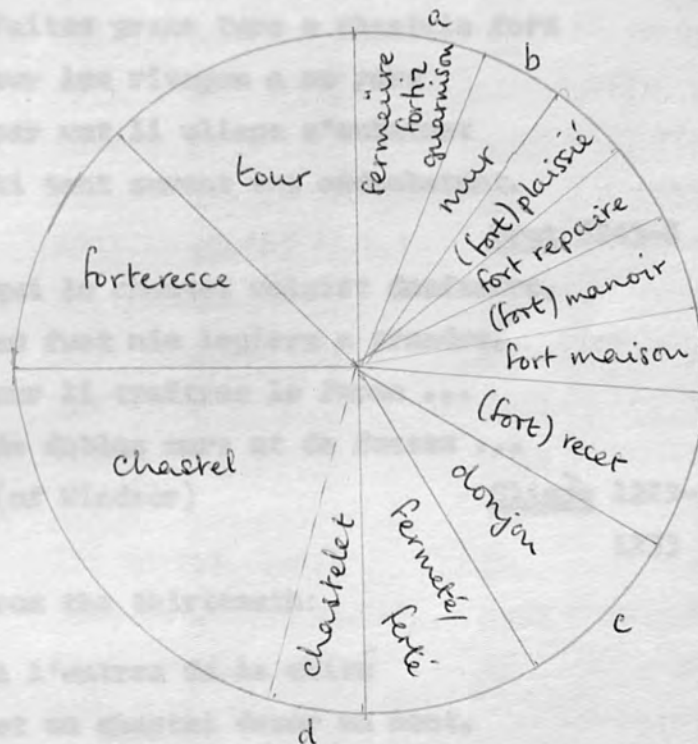 a
b
fermëure
fortiz
guarnison
mur
(fort) plaissié
fort repaire
(fort) manoir
fort maison
(fort) recet
donjon
c
fermeté/
ferté
chastelet
d
chastel
forteresce
tour